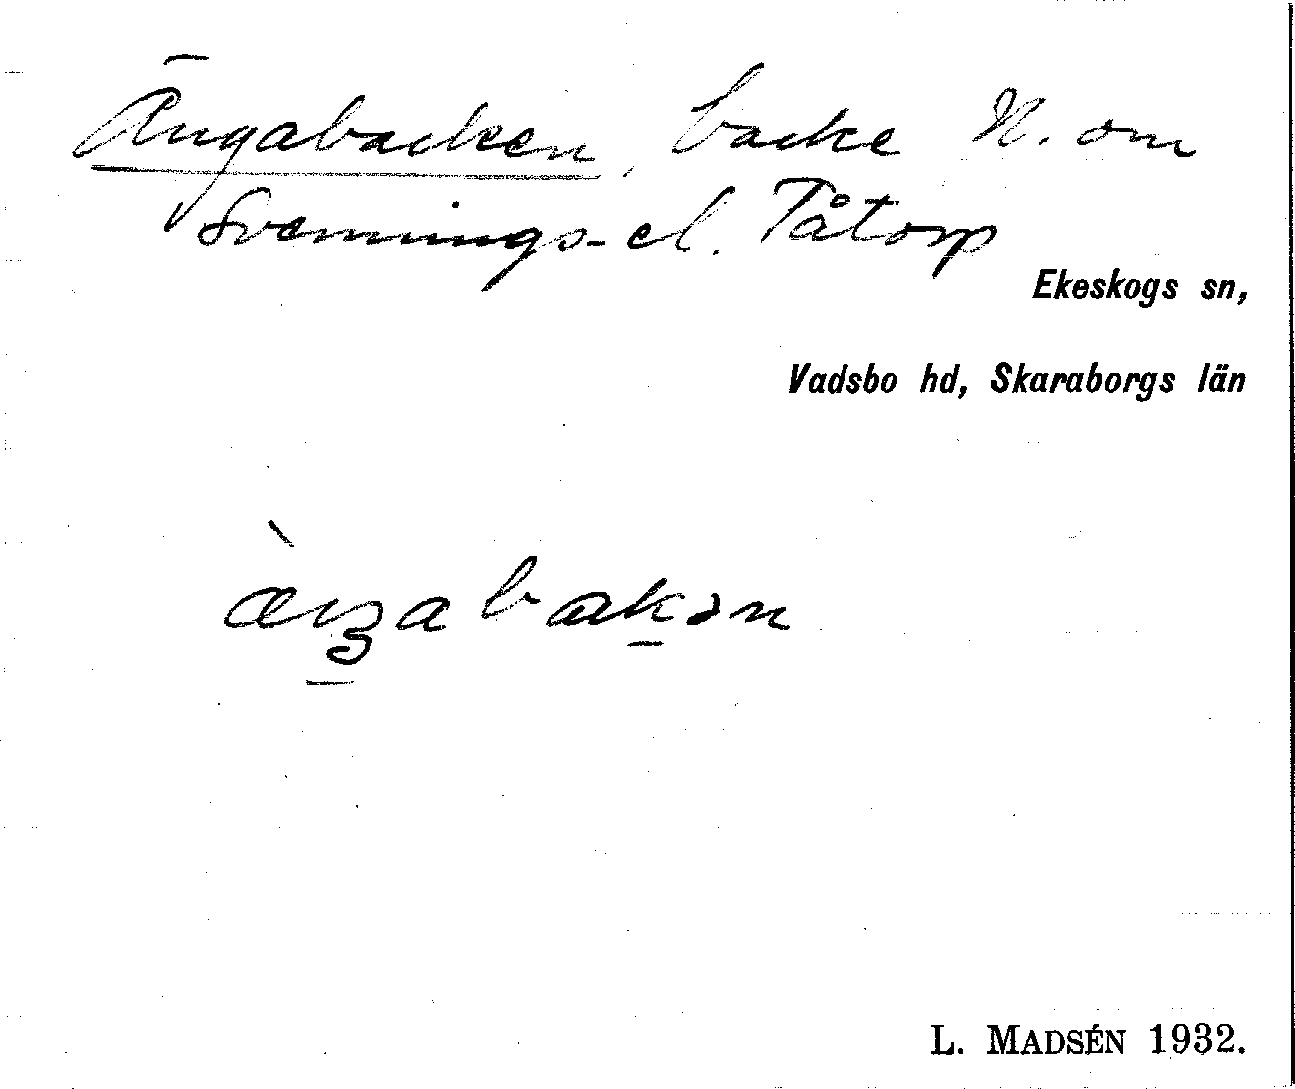 Ängabacken, backe N. om
Svennings- el. Tåtorp
Ekeskogs sn,
Vadsbo hd, Skaraborgs län
L. MADSÉN 1932.